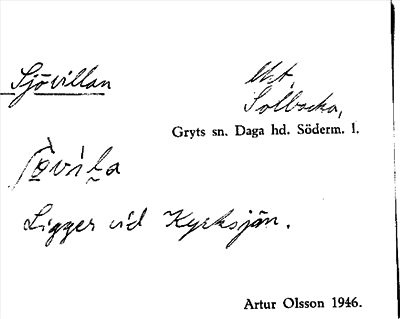 Sjövillan
Ut.
Solbacka,
Gryts sn. Daga hd. Söderm. l.
Ligger vid Kyrksjön.
Artur Olsson 1946.